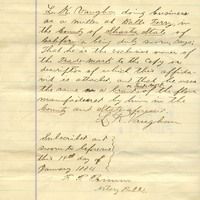 L. R. Vaughn doing business
as a miller at Bells Ferry in
the County of State of
being duly sworn says
That he is the exclusive owner of
the Trade mark to the Copy or
description of which this affida-
vit is attached, and that he uses
the same as a brand of the flour
manufactured by him in the
County and State aforesaid
L. R. Vaughn
Subscribed and
sworn to before me
this 18th day of
January 1884
Notary Public